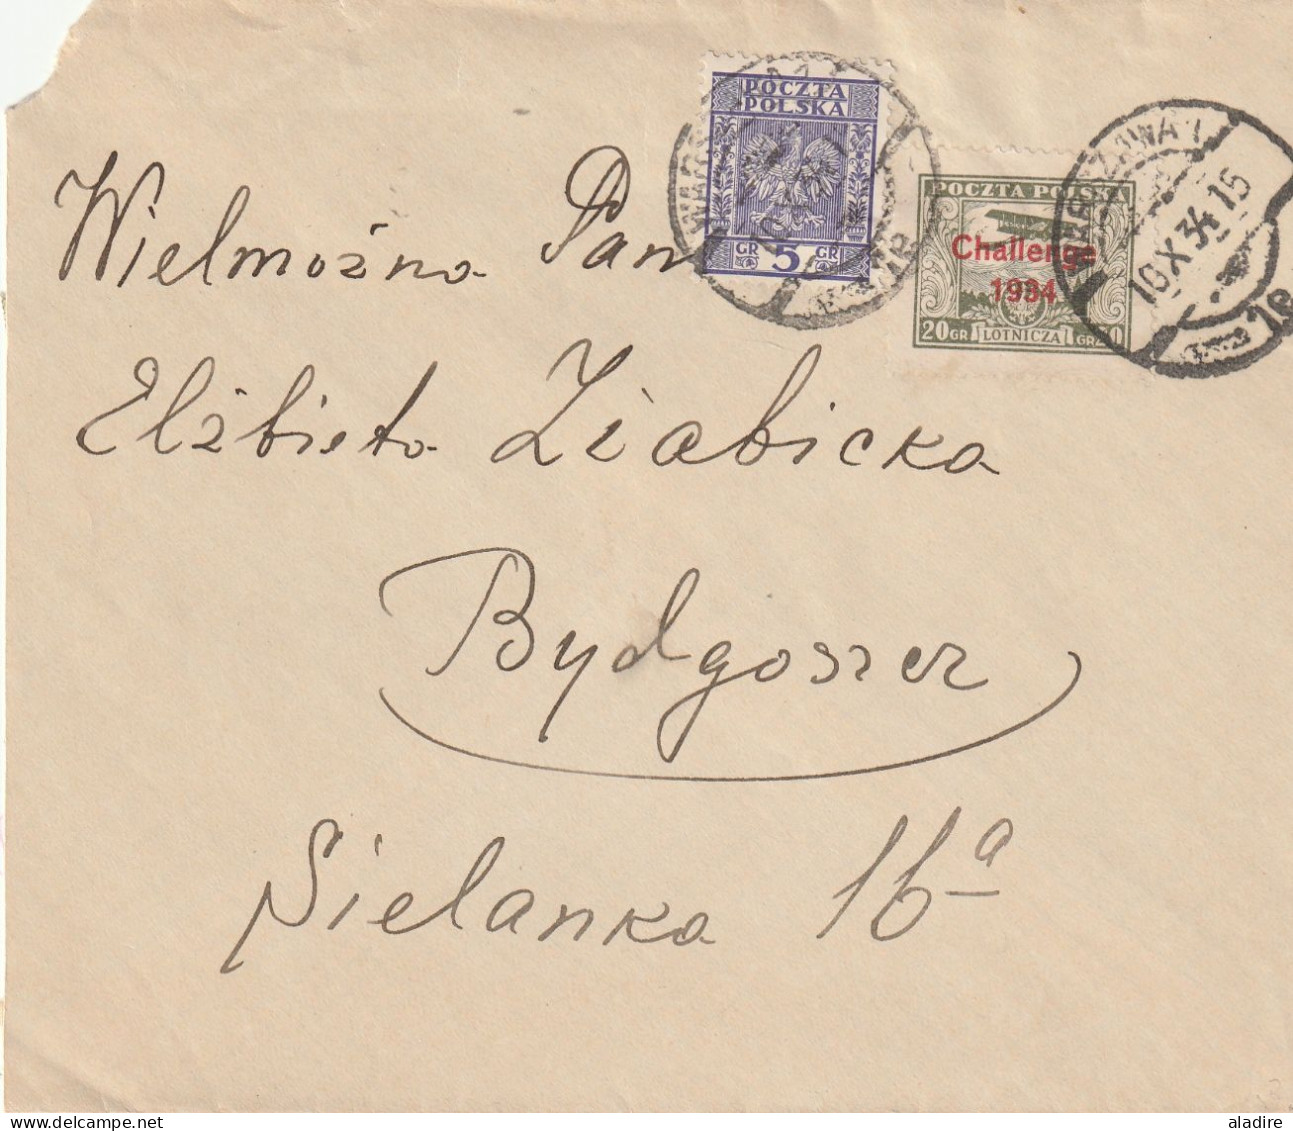 POCZTA
POLSKA
GR 5 GR
POCZTA POLSKA
Challenge
1934
20 GR LOTNICZA GR 20
WARSZAWA 1
10 X 34 15
Wielmożna Pan
Elżbieta Ziabicka
Bydgoszcz
Sielanka 16a
aladire